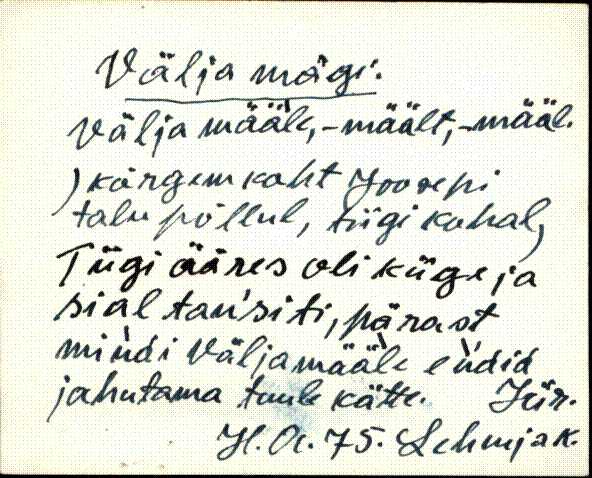 Välja mägi.
Välja määle, -mäält, -määl.
) kõrgem koht Joosepi
talu põllul, tiigi kohal,
Tiigi ääres oli küge ja
sial tansiti, pärast
mindi Väljamääle endid
jahutama tuule kätte. Jür.
H. A. 75. Lehmjak.